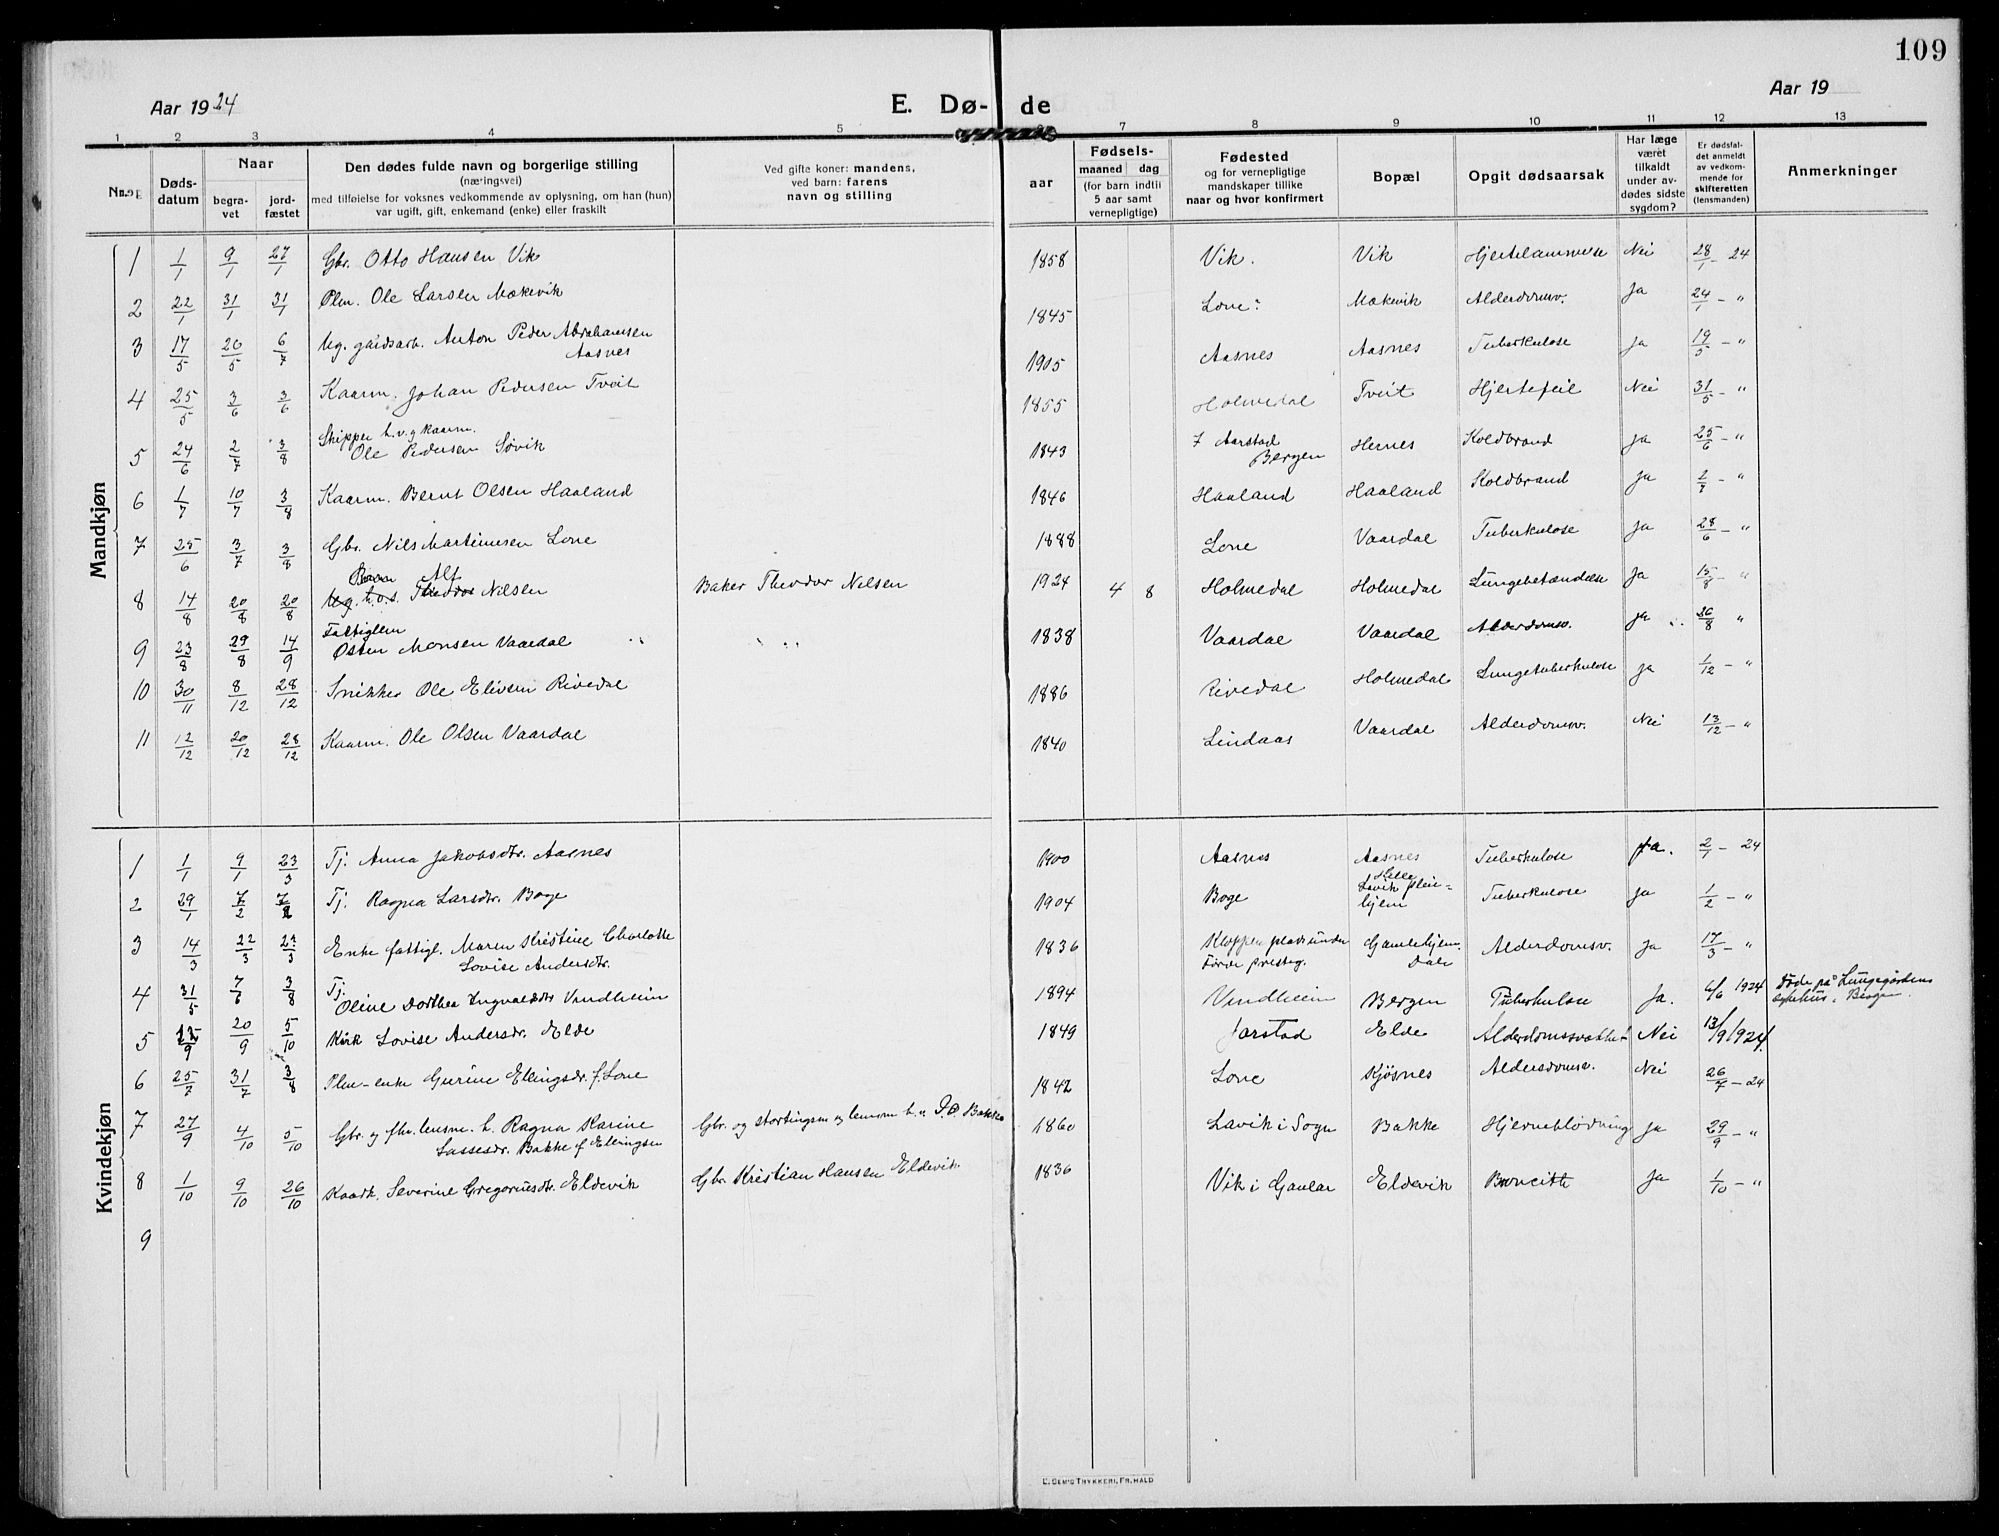 109
Aar 1924
E. Dø- de
Aar 19
1 2 3 4 5 7 8 9 10 11 12 13
Døds-
datum
Naar
begra-
vet
jord-
fæstet
Den dødes fulde navn og borgerlige stilling
(næringsvei)
med tilføielse for voksnes vedkommende av oplysning, om han (hun)
var ugift, gift, enkemand (enke) eller fraskilt
Ved gifte koner: mandens,
ved barn: farens
navn og stilling
aar
Fødsels-
maaned dag
(for barn indtil
5 aar samt
vernepligtige)
Fødested
og for vernepligtige
mandskaper tillike
naar og hvor konfirmert
Bopæl
Opgit dødsaarsak
Har læge
været
tilkaldt
under av-
dødes sidste
sygdom?
Er dødsfal-
det anmeldt
av vedkom-
mende for
skifteretten
(lensmanden)
Anmerkninger
Mandkjøn
1 1/1 9/1 27/1 Gbr. Otto Hansen Vik 1858 Vik. Vik Hjertelammelse Nei 28/1 - 24
2 22/1 31/1 31/1 Plm. Ole Larsen Mækevik 1845 Lone: Mækevik Alderdomsv. Ja 24/1 - "
3 17/5 20/5 6/7 Ug. gaardsarb. Anton Peder Abrahamsen
Aasnes 1905 Aasnes Aasnes Tuberkulose Ja 19/5 - "
4 25/5 3/6 3/6 Kaarm. Johan Pedersen Tveit 1855 Holmedal Tveit Hjertefeil Nei 31/5 - "
5 24/6 2/7 3/8 Skipper h.v.g kaarm.
Ole Pedersen Søvik 1843 Aarstad
Bergen Hernes Koldbrand Ja 25/6 - "
6 1/7 10/7 3/8 Kaarm. Bernt Olsen Haaland 1846 Haaland Haaland Koldbrand Ja 2/7 - "
7 25/6 3/7 3/8 Gbr. Nils Martinusen Lone 1888 Lone Vaardal Tuberkulose Ja 28/6 - "
8 14/8 20/8 20/8 Barn Alf
Nilsen Baker Theodor Nilsen 1924 4 8 Holmedal Holmedal Lungebetændelse Ja 15/8 - "
9 23/8 29/8 14/9 Fattiglem
Østen Monsen Vaardal 1838 Vaardal Vaardal Alderdomsv. Ja 26/8 "
10 30/11 8/12 28/12 Snikker Ole Elivsen Rivedal 1886 Rivedal Holmedal Lungetuberkulose Ja 1/12 - "
11 12/12 20/12 28/12 Kaarm. Ole Olsen Vaardal 1840 Lindaas Vaardal Alderdomsv. Nei 13/12 - "
Kvindekjøn
1 1/1 9/1 23/3 Tj. Anna Jakobsdtr. Aasnes 1900 Aasnes Aasnes Tuberkulose Ja. 2/1 - 24
2 29/1 7/2 7/2 Tj. Ragna Larsdtr. Boge 1904 Boge Helle
Lavik pleie-
hjem Tuberkulose Ja 1/2 - "
3 14/3 22/3 23/3 Enke fattigl. Maren Kristine Charlotte
Lovise Andersdtr. 1836 Kloppen plads under
Førde presteg. Gamlehjem.
Dale Alderdomsv. Ja 17/3 - "
4 31/5 7/6 3/8 Tj.
Oline Dorthea Ingvaldsdtr Vindheim 1894 Vindheim Bergen Tuberkulose Ja. 6/6 1924 Døde på Lungegårdens
sykehus i Bergen.
5 12/9 20/9 5/10 Lovise Andersdr. Elde 1849 Jarstad Elde Alderdomssvakhet Nei 13/9 1924.
6 25/7 31/7 3/8 Plm-enke Gurine Ellingsdr. f. Lone 1842 Lone Kjøsnes Aldersdomsv. Nei 26/7 - 24
7 27/9 4/10 5/10 Gbr. og fhv. lensm. h. Ragna Karine
Lassesdr. Bakke f Ellingsen Gbr. og stortingsm og lensm h. v. P.O. Bakke 1860 Lavik i Sogn Bakke Hjerneblødning Ja 29/9 - "
8 1/10 9/10 26/10 Kaark. Severine Gregoriusdtr. Eldevik Gbr. Kristian Hansen Eldevik 1836 Vik i Gaular Eldevik Broncitt Ja 1/10 - "
9